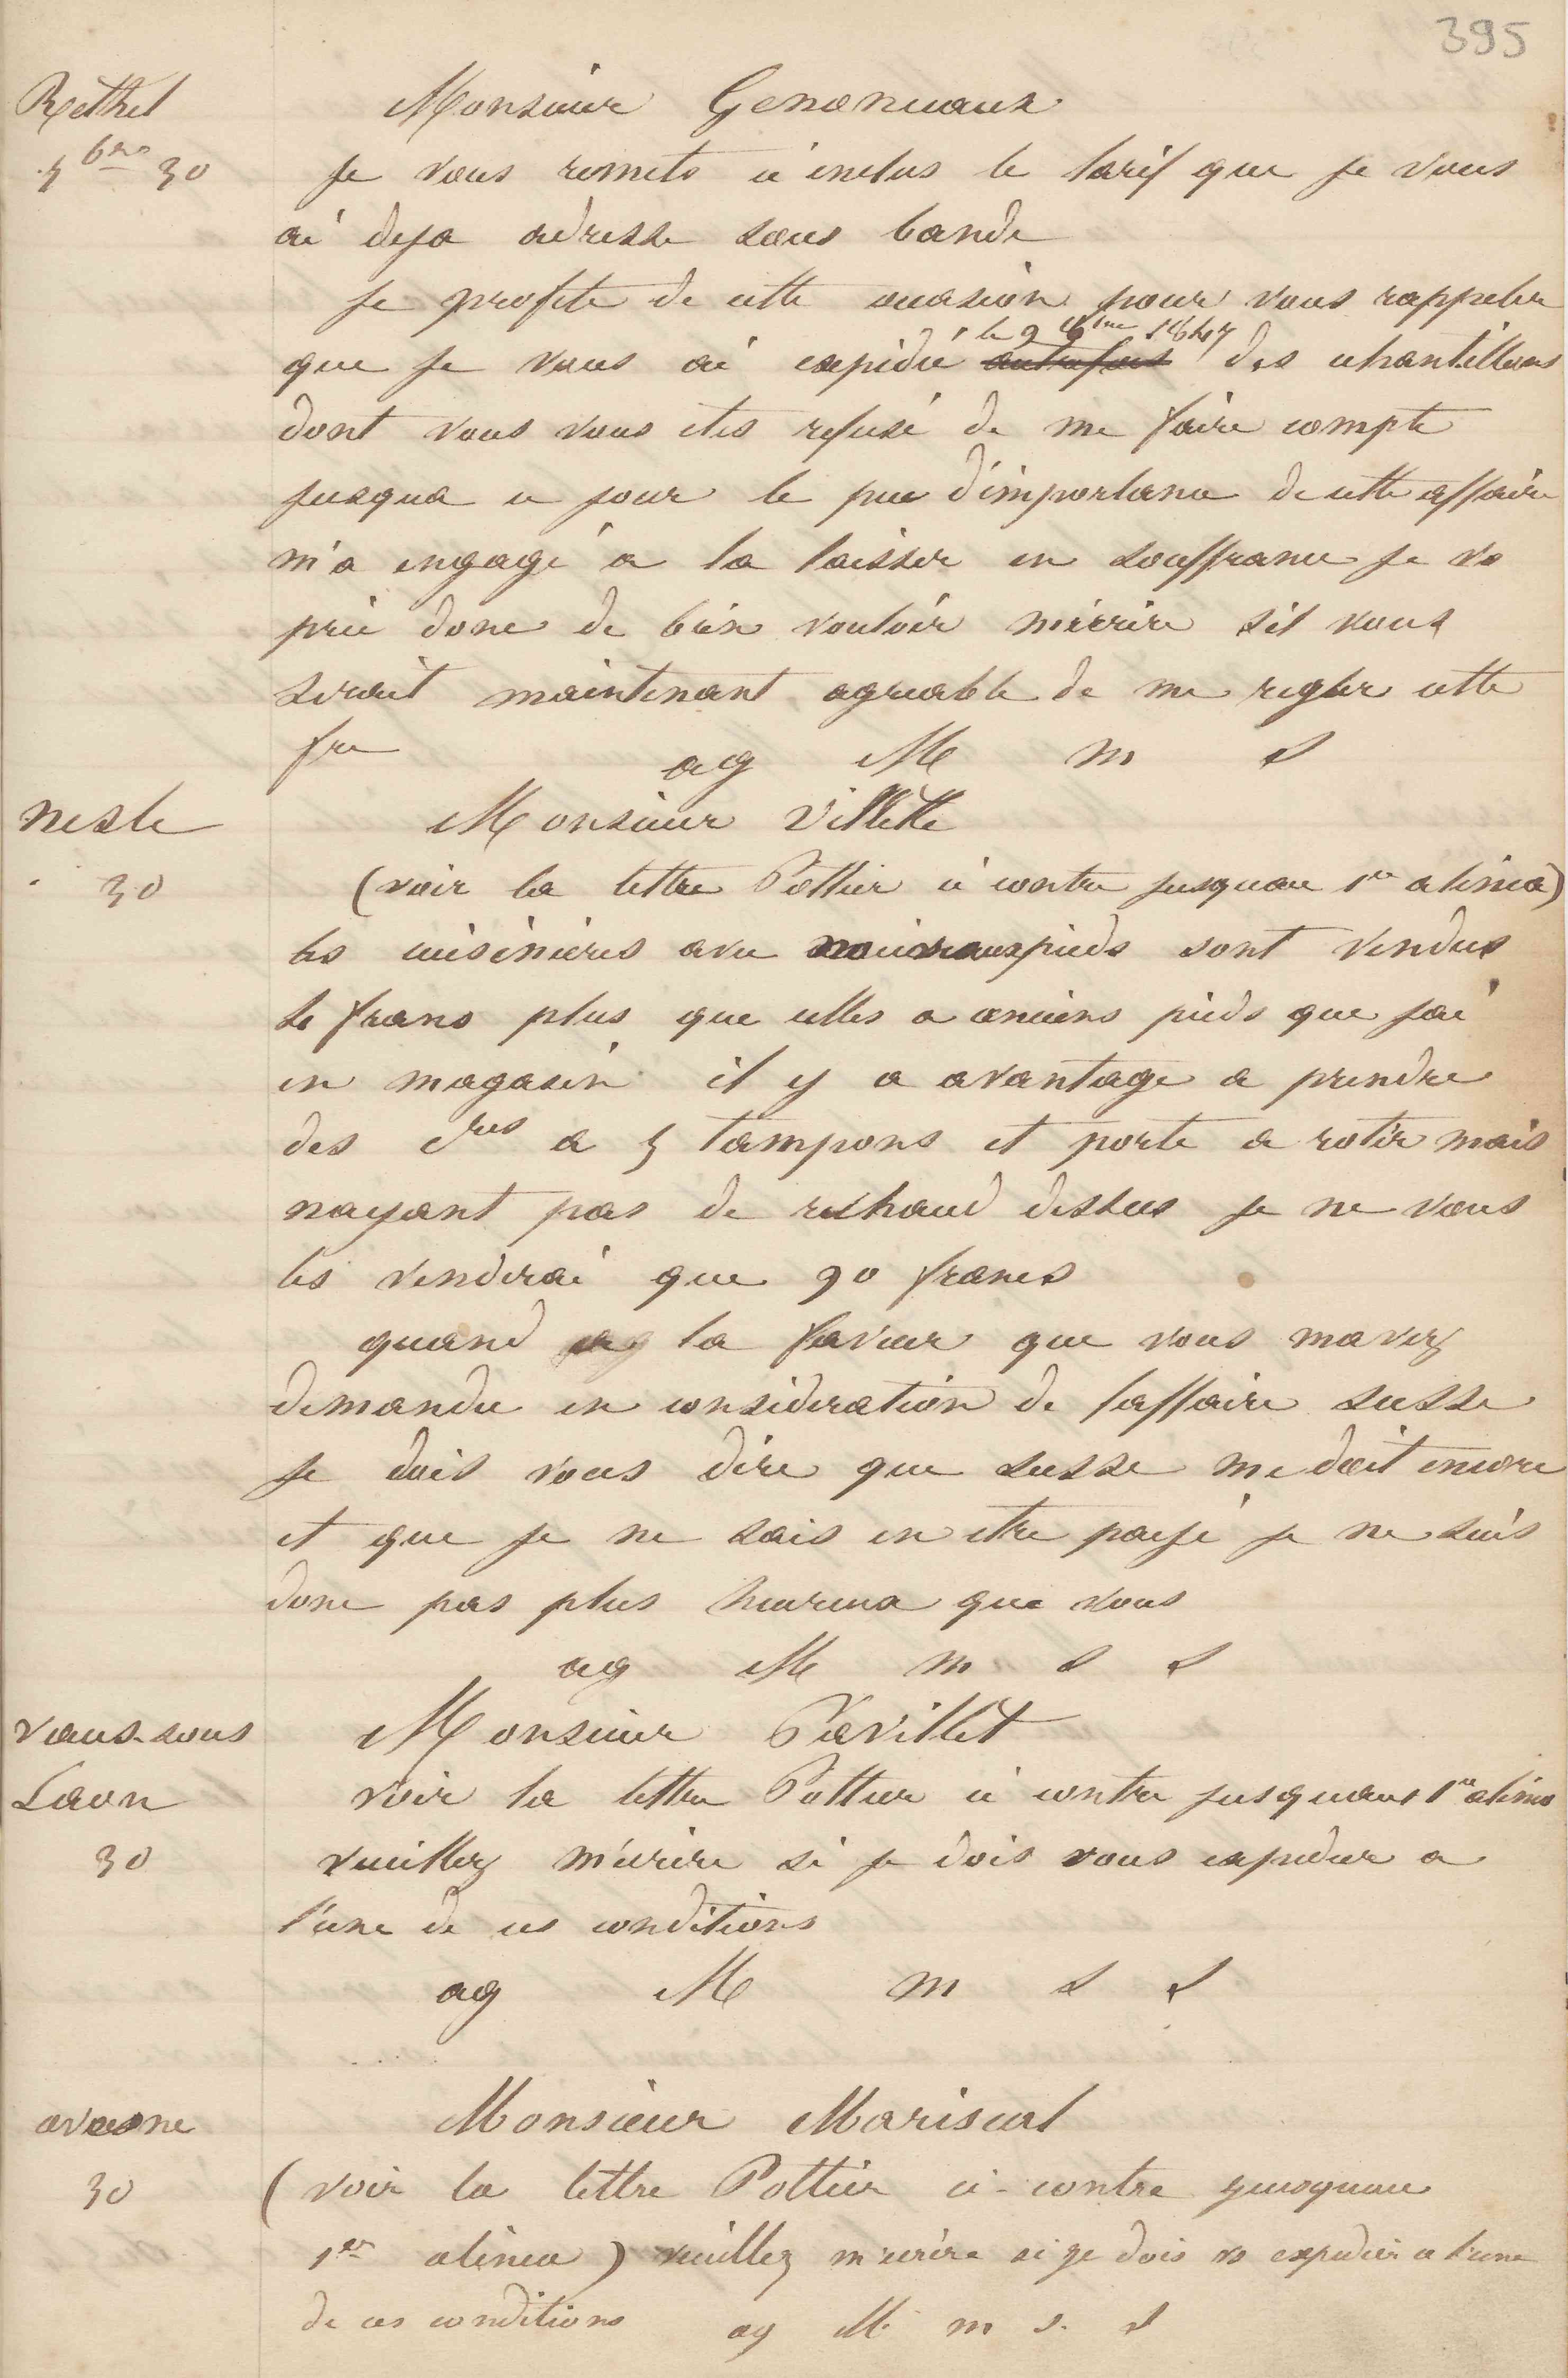 395
Rethel
7bre 30
Monsieur Genonceaux
Je vous remets ci inclus le tarif que je vous
ai deja adresse sous bande
Je profite de cette occasion pour vous rappeler
le 9 9bre 1847
que je vous ai expédié autrefois des echantillons
dont vous vous etes refusé de me faire compte
jusqua ce jour le peu d'importance de cette affaire
m'a engagé a la laisser en souffrance je vs
prie donc de bien vouloir m'ecrire sil vous
serait maintenant agreable de me regler cette
fre
ag M m s
nesle
30
Monsieur Villette
(voir la lettre Pottier ci contre jusquau 1er alinea)
les cuisinieres avec nouveaux pieds sont vendus
le francs plus que celles a anciens pieds que jai
en magasin il y a avantage a prendre
des cres a 5 tampons et porte a rotir mais
nayant pas de rechaud dessus je ne vous
les venderai que 90 francs
quand a la faveur que vous mavez
demandee en consideration de laffaire susse
je dois vous dire que susse me doit encore
et que je ne sais en etre payé je ne suis
donc pas plus heureux que vous
ag M m s s
vaux-sous
Laon
30
Monsieur Pavillet
voir la lettre Pottier ci contre jusquaus 1er alinea
veuillez m'ecrire si je dois vous expedier a
l'une de ces conditions
ag M m s s
avesne
30
Monsieur Mariscal
(voir la lettre Pottier ci-contre jusquau
1er alinea) veuillez m'ecrire si je dois vs expedier a l'une
de ces conditions ag M m s. s